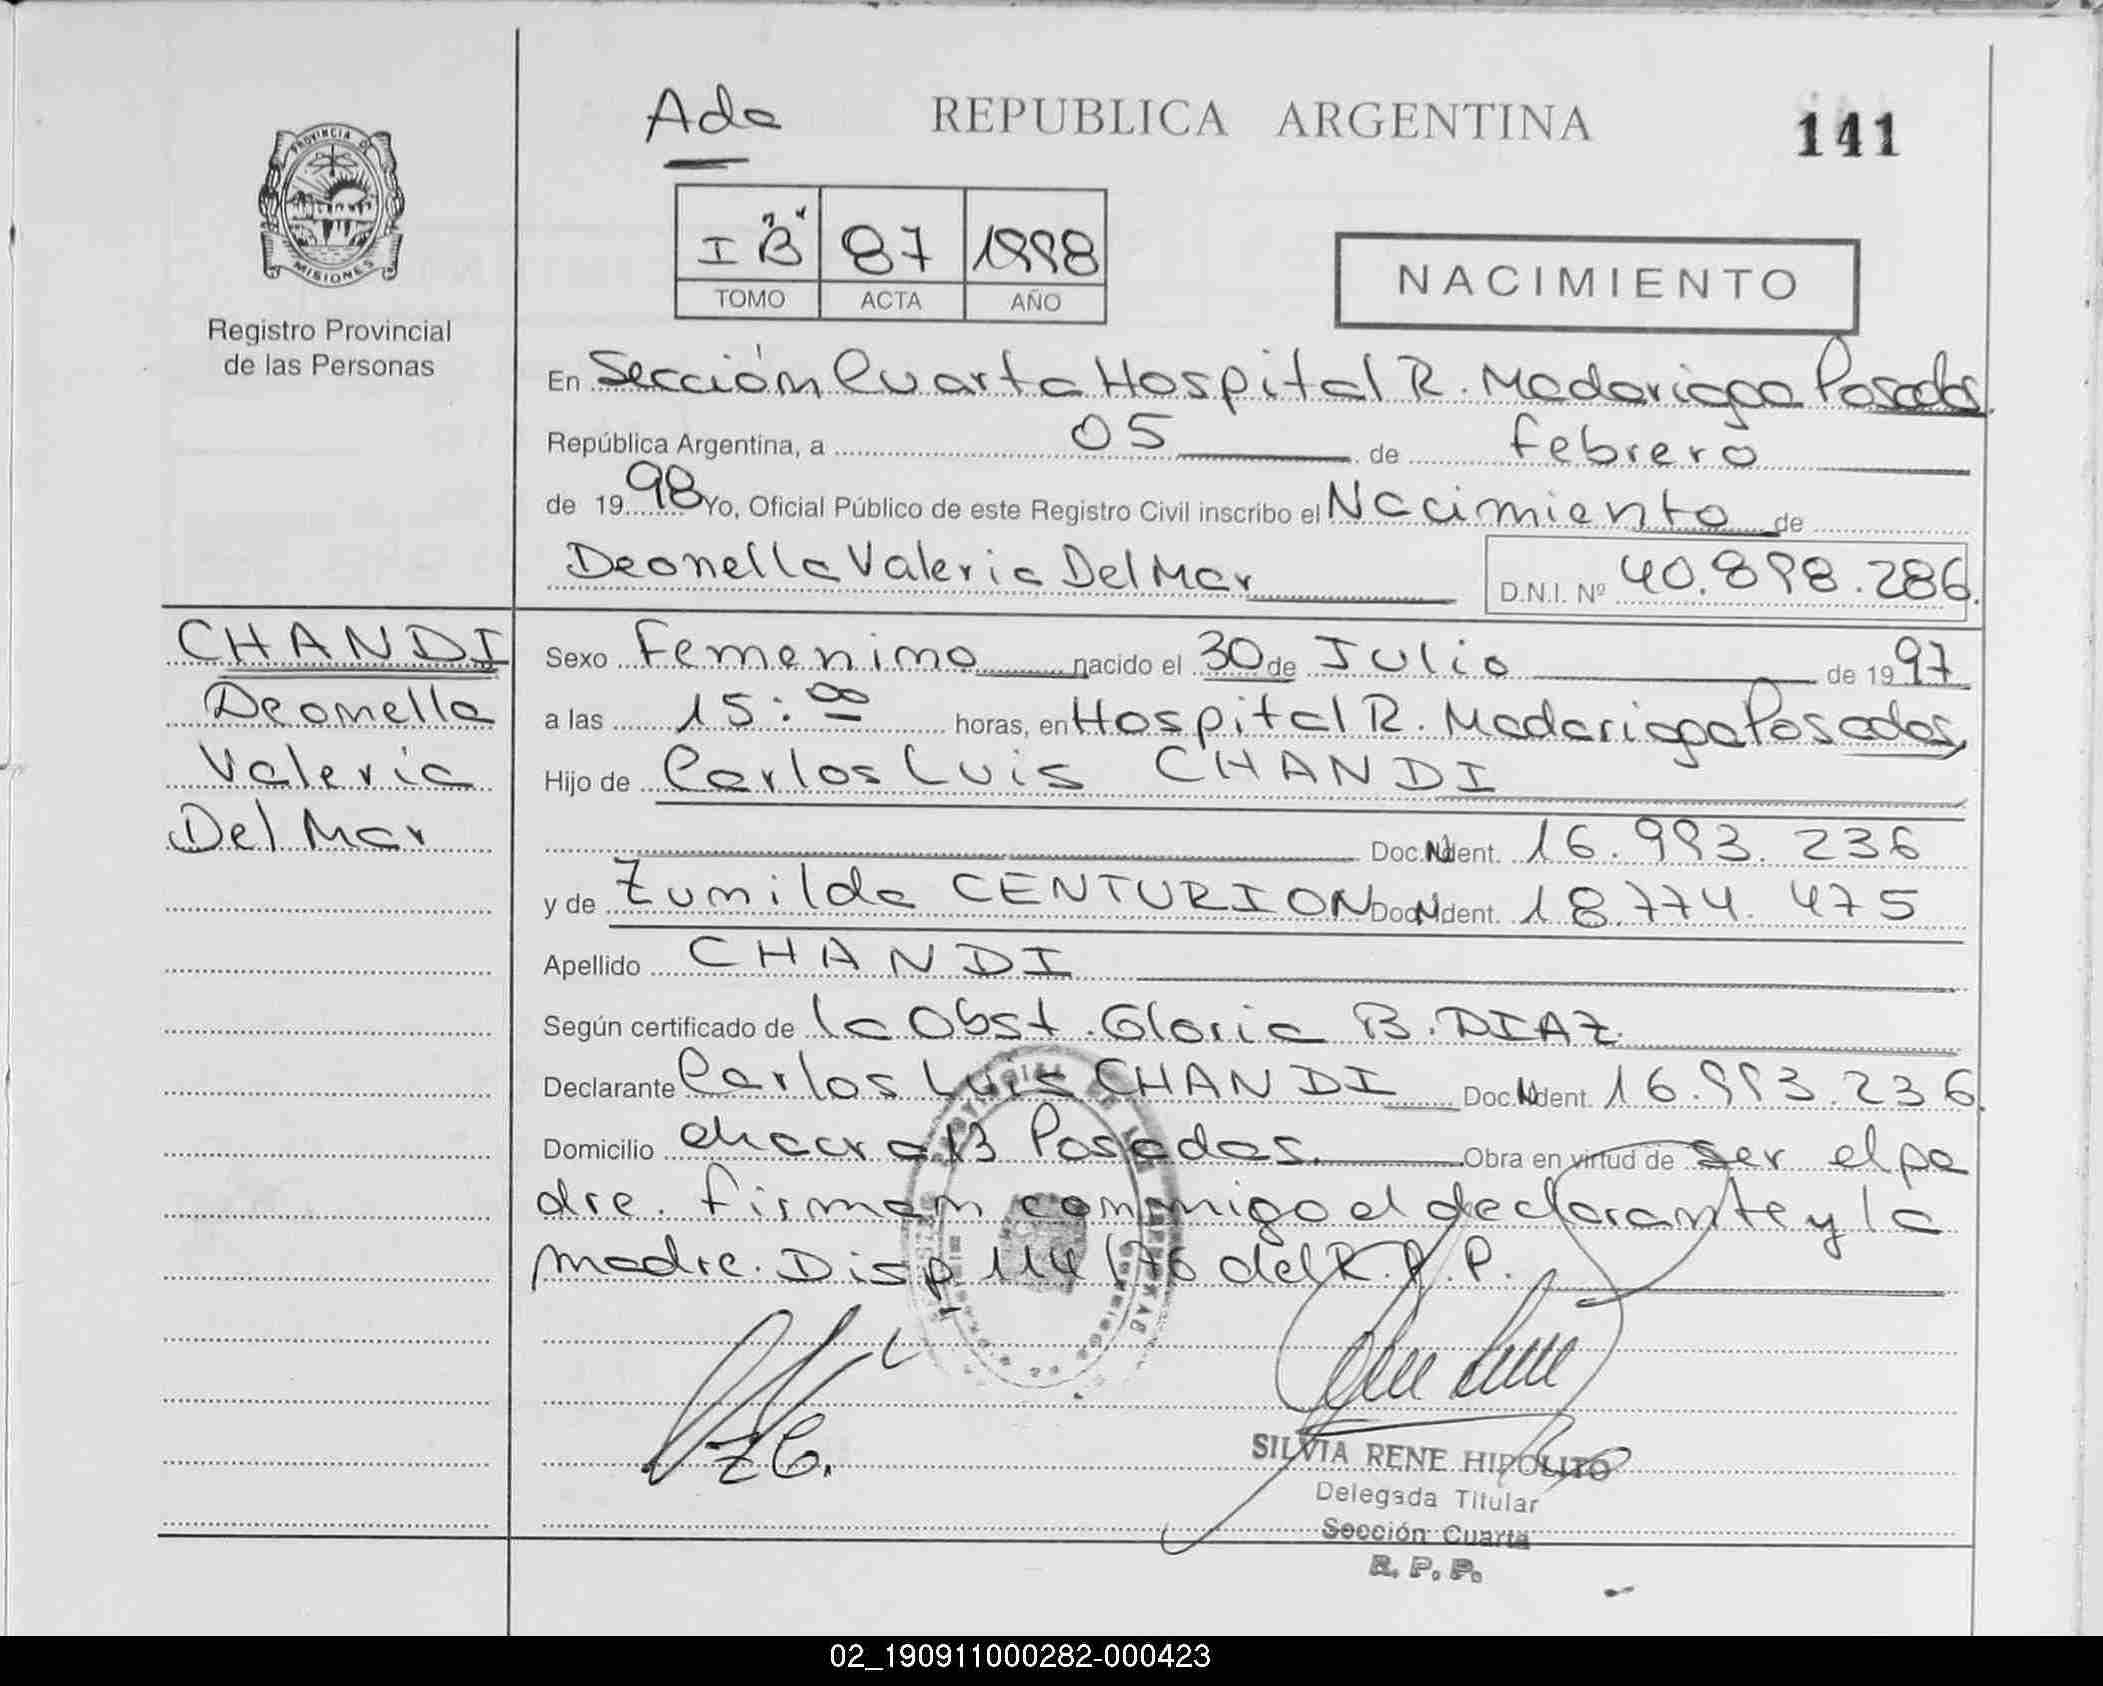 Ada
REPUBLICA ARGENTINA
141
PROVINCIA DE
MISIONES
Registro Provincial
de las Personas
I "B" 87 1998
TOMO ACTA AÑO
NACIMIENTO
En Sección Cuarta Hospital R. Madariaga Posadas.
República Argentina, a 05 de febrero
de 1998 Yo, Oficial Público de este Registro Civil inscribo el Nacimiento de
Deonella Valeria Del Mar D.N.I. Nº 40.898.286.
CHANDI
Deonella
Valeria
Del Mar
Sexo Femenino nacido el 30 de Julio de 1997
a las 15:00 horas, en Hospital R. Madariaga Posadas,
Hijo de Carlos Luis CHANDI
Doc. Ident. 16.993.236
y de Zunilda CENTURION Doc. Ident. 18.774.475
Apellido CHANDI
Según certificado de la Obst. Gloria B. DIAZ.
Declarante Carlos Luis CHANDI Doc. Ident. 16.993.236.
Domicilio chacra 13 Posadas. Obra en virtud de ser el pa
dre. firman conmigo el declarante y la
madre. Disp 114/76 del R.P.P.
Z C.
SILVIA RENE HIPOLITO
Delegada Titular
Sección Cuarta
R. P. P.
02_190911000282-000423